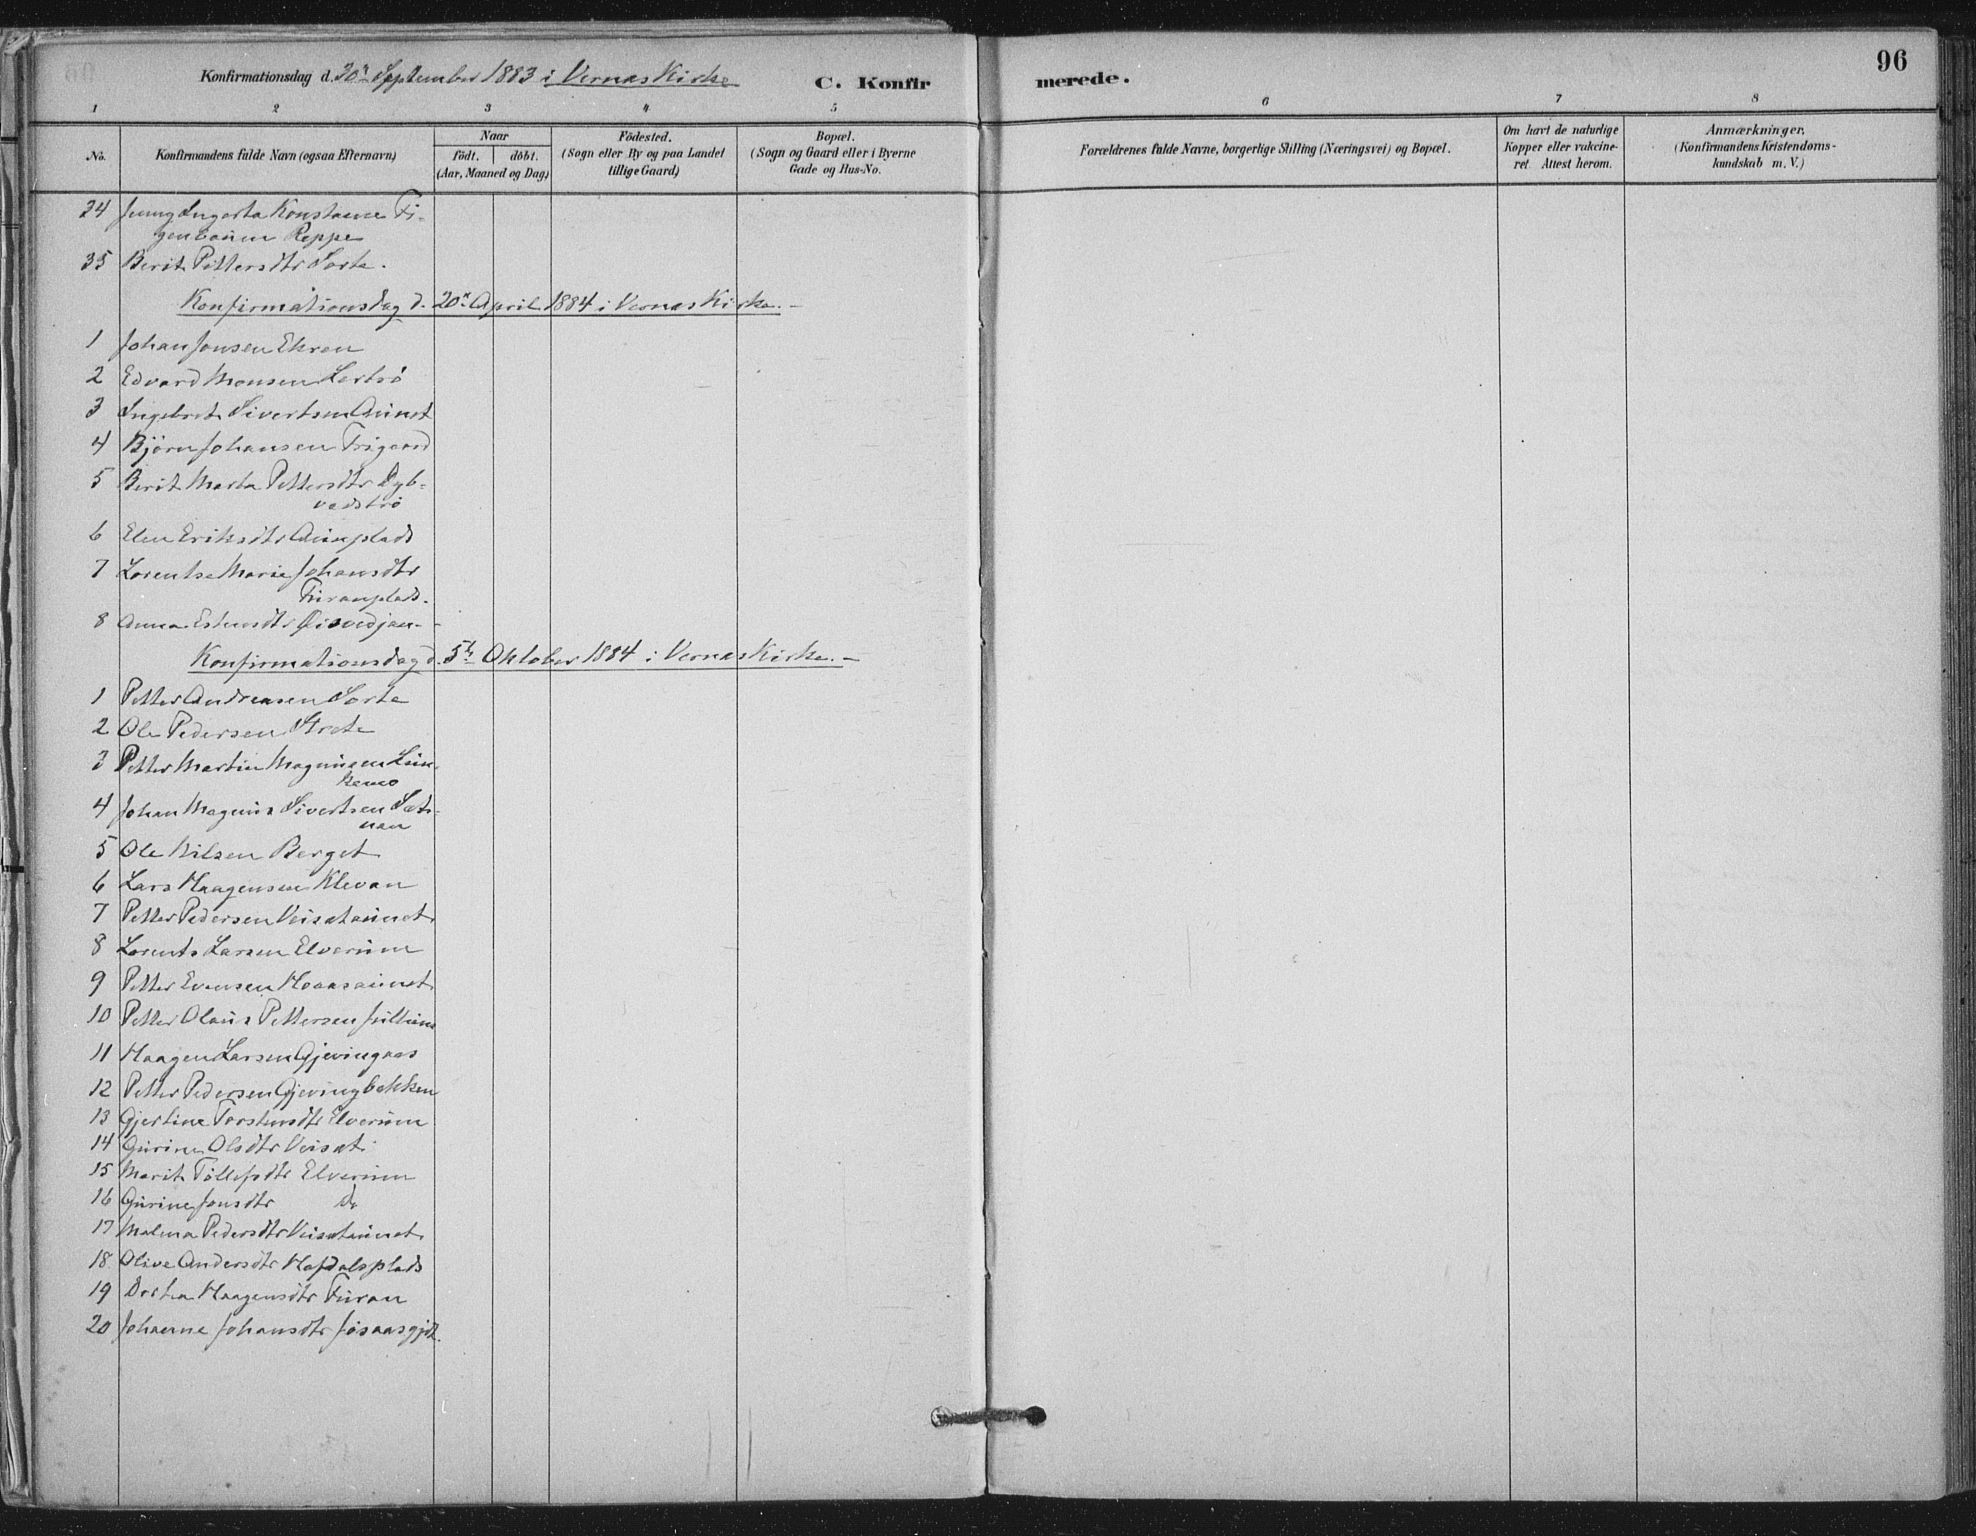 96
Konfirmationsdag d. 30te September 1883 i Vernes Kirke
C. Konfirmerede.
1 2 3 4 5 6 7 8
No.
Konfirmandens fulde Navn (ogsaa Efternavn)
Naar
födt. döbt.
(Aar, Maaned og Dag)
Födested.
(Sogn eller By og paa Landet
tillige Gaard)
Bopæl.
(Sogn og Gaard eller i Byerne
Gade og Hus-No.
Forældrenes fulde Navne, borgerlige Stilling (Næringsvei) og Bopæl.
Om havt de naturlige
Kopper eller vakcine-
ret. Attest herom.
Anmærkninger.
(Konfirmandens Kristendoms-
kundskab m. V.)
34 Ingerta Konstanse
Reppe
35 Berit Pittersdtr Sorte.
Konfirmationsdag d. 20de April 1884 i Vernes Kirke. –
1 Johan Jonsen Ekren
2 Edvard Monsen
3 Ingebret Sivertsen Aunet
4 Bjørn Johansen Frigaard
5 Berit Marta Pettersdtr Dyb-
vadstrø
6 Elen Eriksdtr Aunplads
7 Lorentse Marie Johansdtr
Furanplads.
8 Anna Estensdtr
Konfirmationsdag d. 5te Oktober 1884 i Vernes Kirke. –
1 Petter Andreasen Sorte
2 Ole Pedersen
3 Petter Martin Magnusen Lun-
kemo
4 Johan Magnus Sivertsen Sæts-
nan
5 Ole Nilsen Berget
6 Lars Haagensen Klevan
7 Petter Pedersen Veisetaunet
8 Lorents Larsen Elverum
9 Petter Evensen Moaasaunet
10 Petter Olaus Pettersen Jullum
11 Haagen Larsen Gjevingaas
12 Petter Pedersen Gjevingbekken
13 Gjertine Torstensdtr Elverum
14 Gurine Olsdtr Veiset
15 Marit Tollefsdtr Elverum
16 Gurine Jonsdtr Do
17 Malena Pedersdtr Veisetaunet
18 Olive Andersdtr Hofdalsplads
19 Dortea Haagensdtr Furan
20 Johanne Johansdtr Jøsaasgjdt.